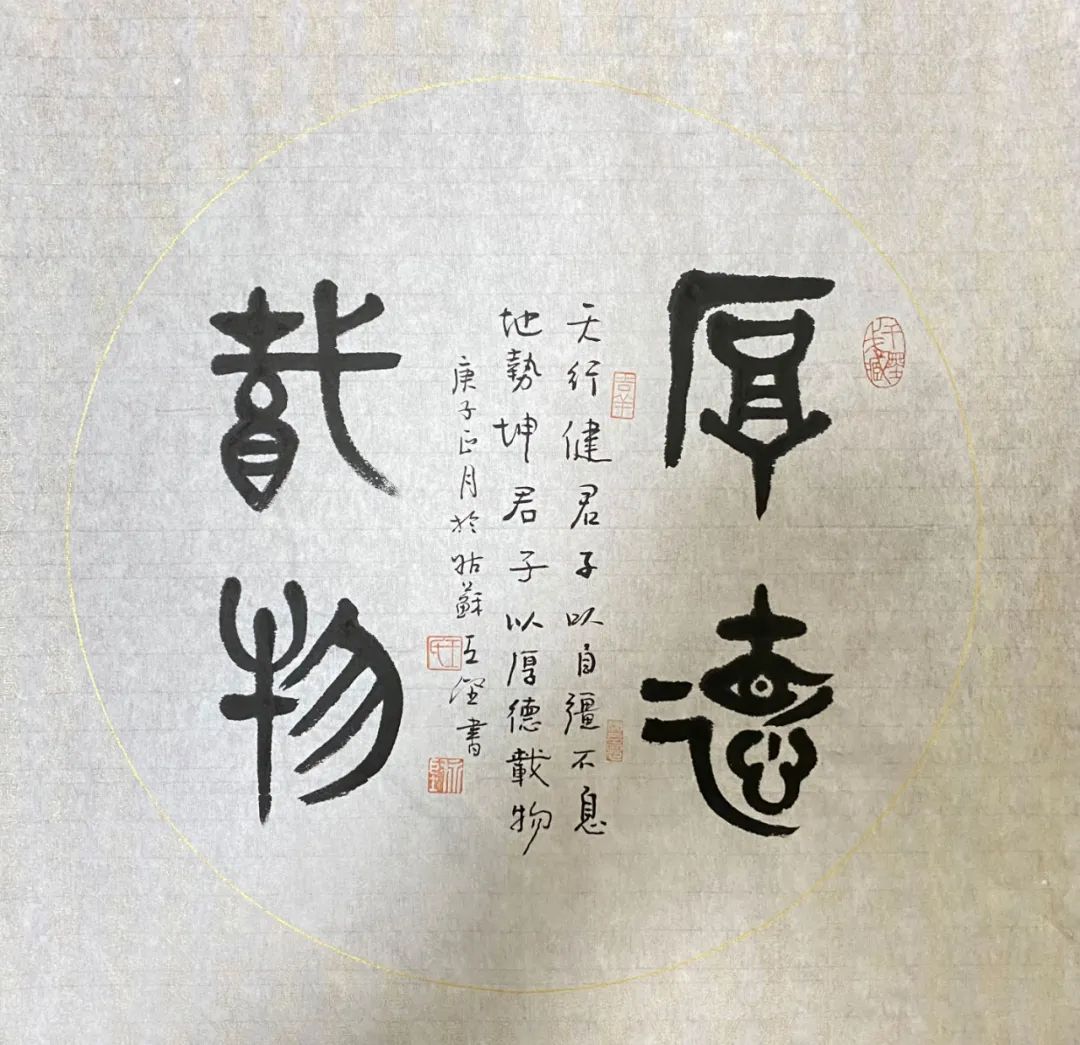 厚德
载物
天行健君子以自彊不息
地勢坤君子以厚德載物
庚子正月於姑蘇
書